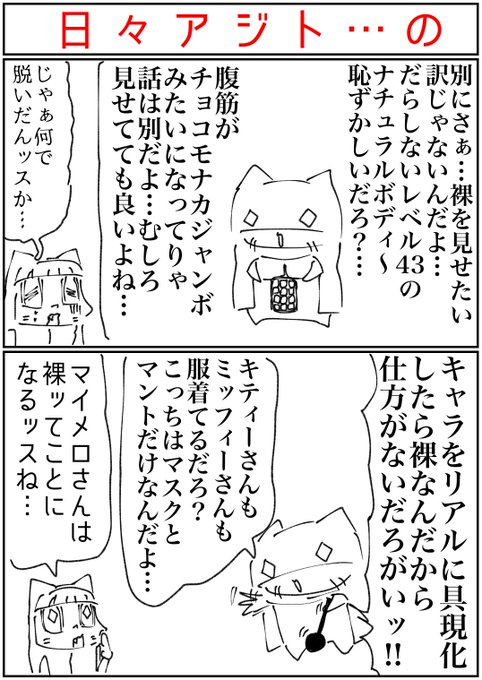 日々アジト…の
別にさぁ…裸を見せたい
訳じゃないんだよ…
だらしないレベル43の
ナチュラルボディ〜
恥ずかしいだろ?…
腹筋が
チョコモナカジャンボ
みたいになってりゃ
話は別だよ…むしろ
見せてても良いよね…
じゃぁ何で
脱いだんッスか…
キャラをリアルに具現化
したら裸なんだから
仕方がないだろがいッ!!
キティーさんも
ミッフィーさんも
服着てるだろ?
こっちはマスクと
マントだけなんだよ…
マイメロさんは
裸ってことに
なるッスね…